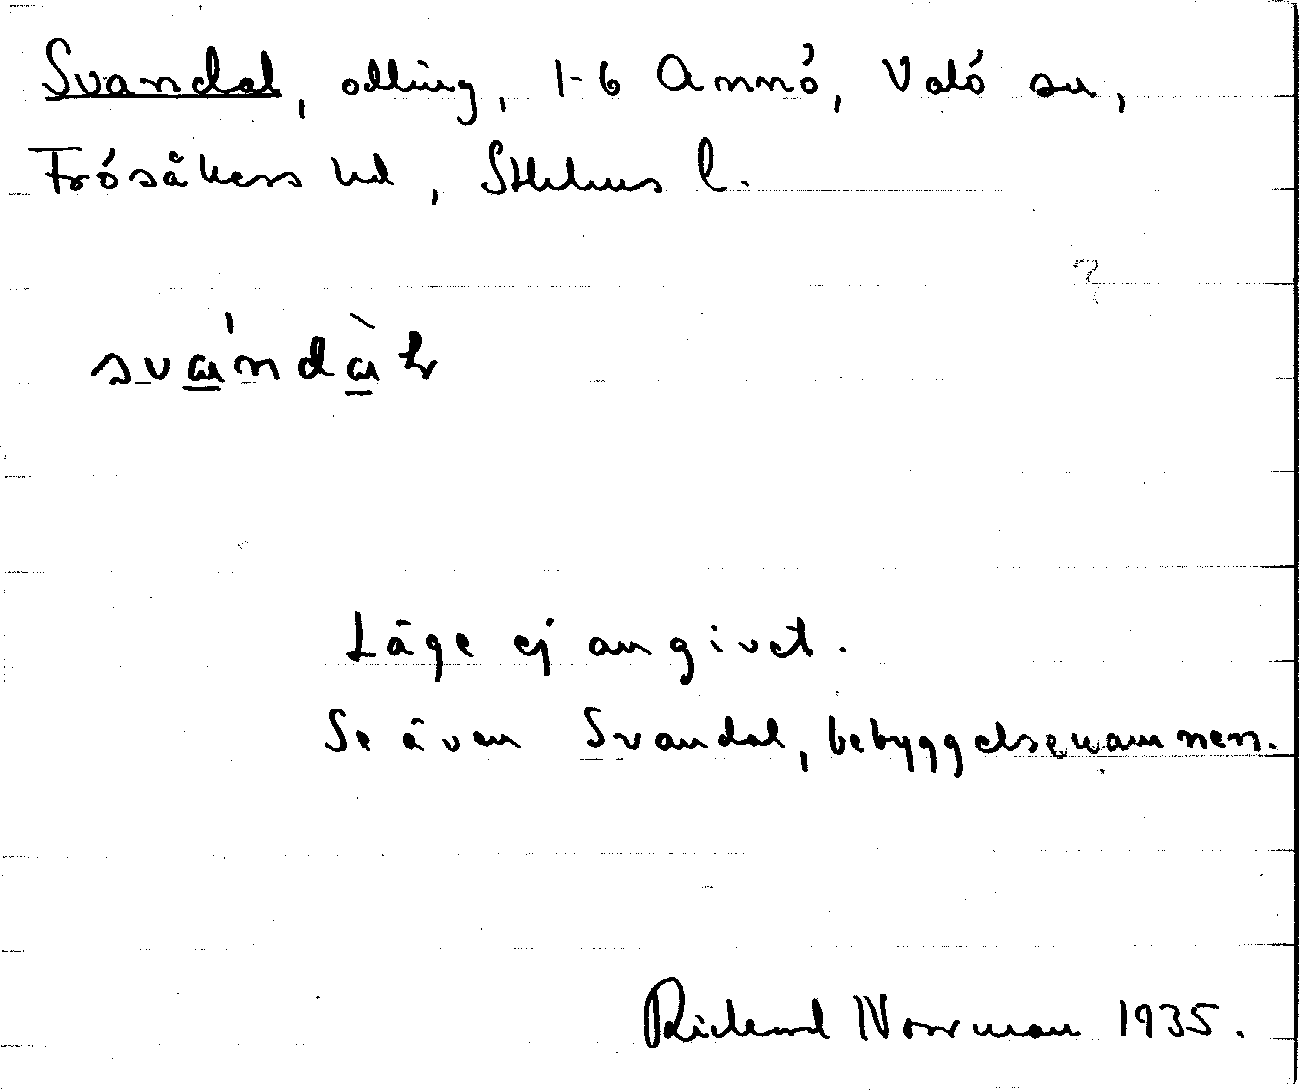 Svandal, odling, 1-6 Annö, Valö sn,
Frösåkers hd, Sthlms l.
svándàlr
Läge ej angivet.
Se även Svandal, bebyggelsenamnen.
Rickard Norrman 1935.